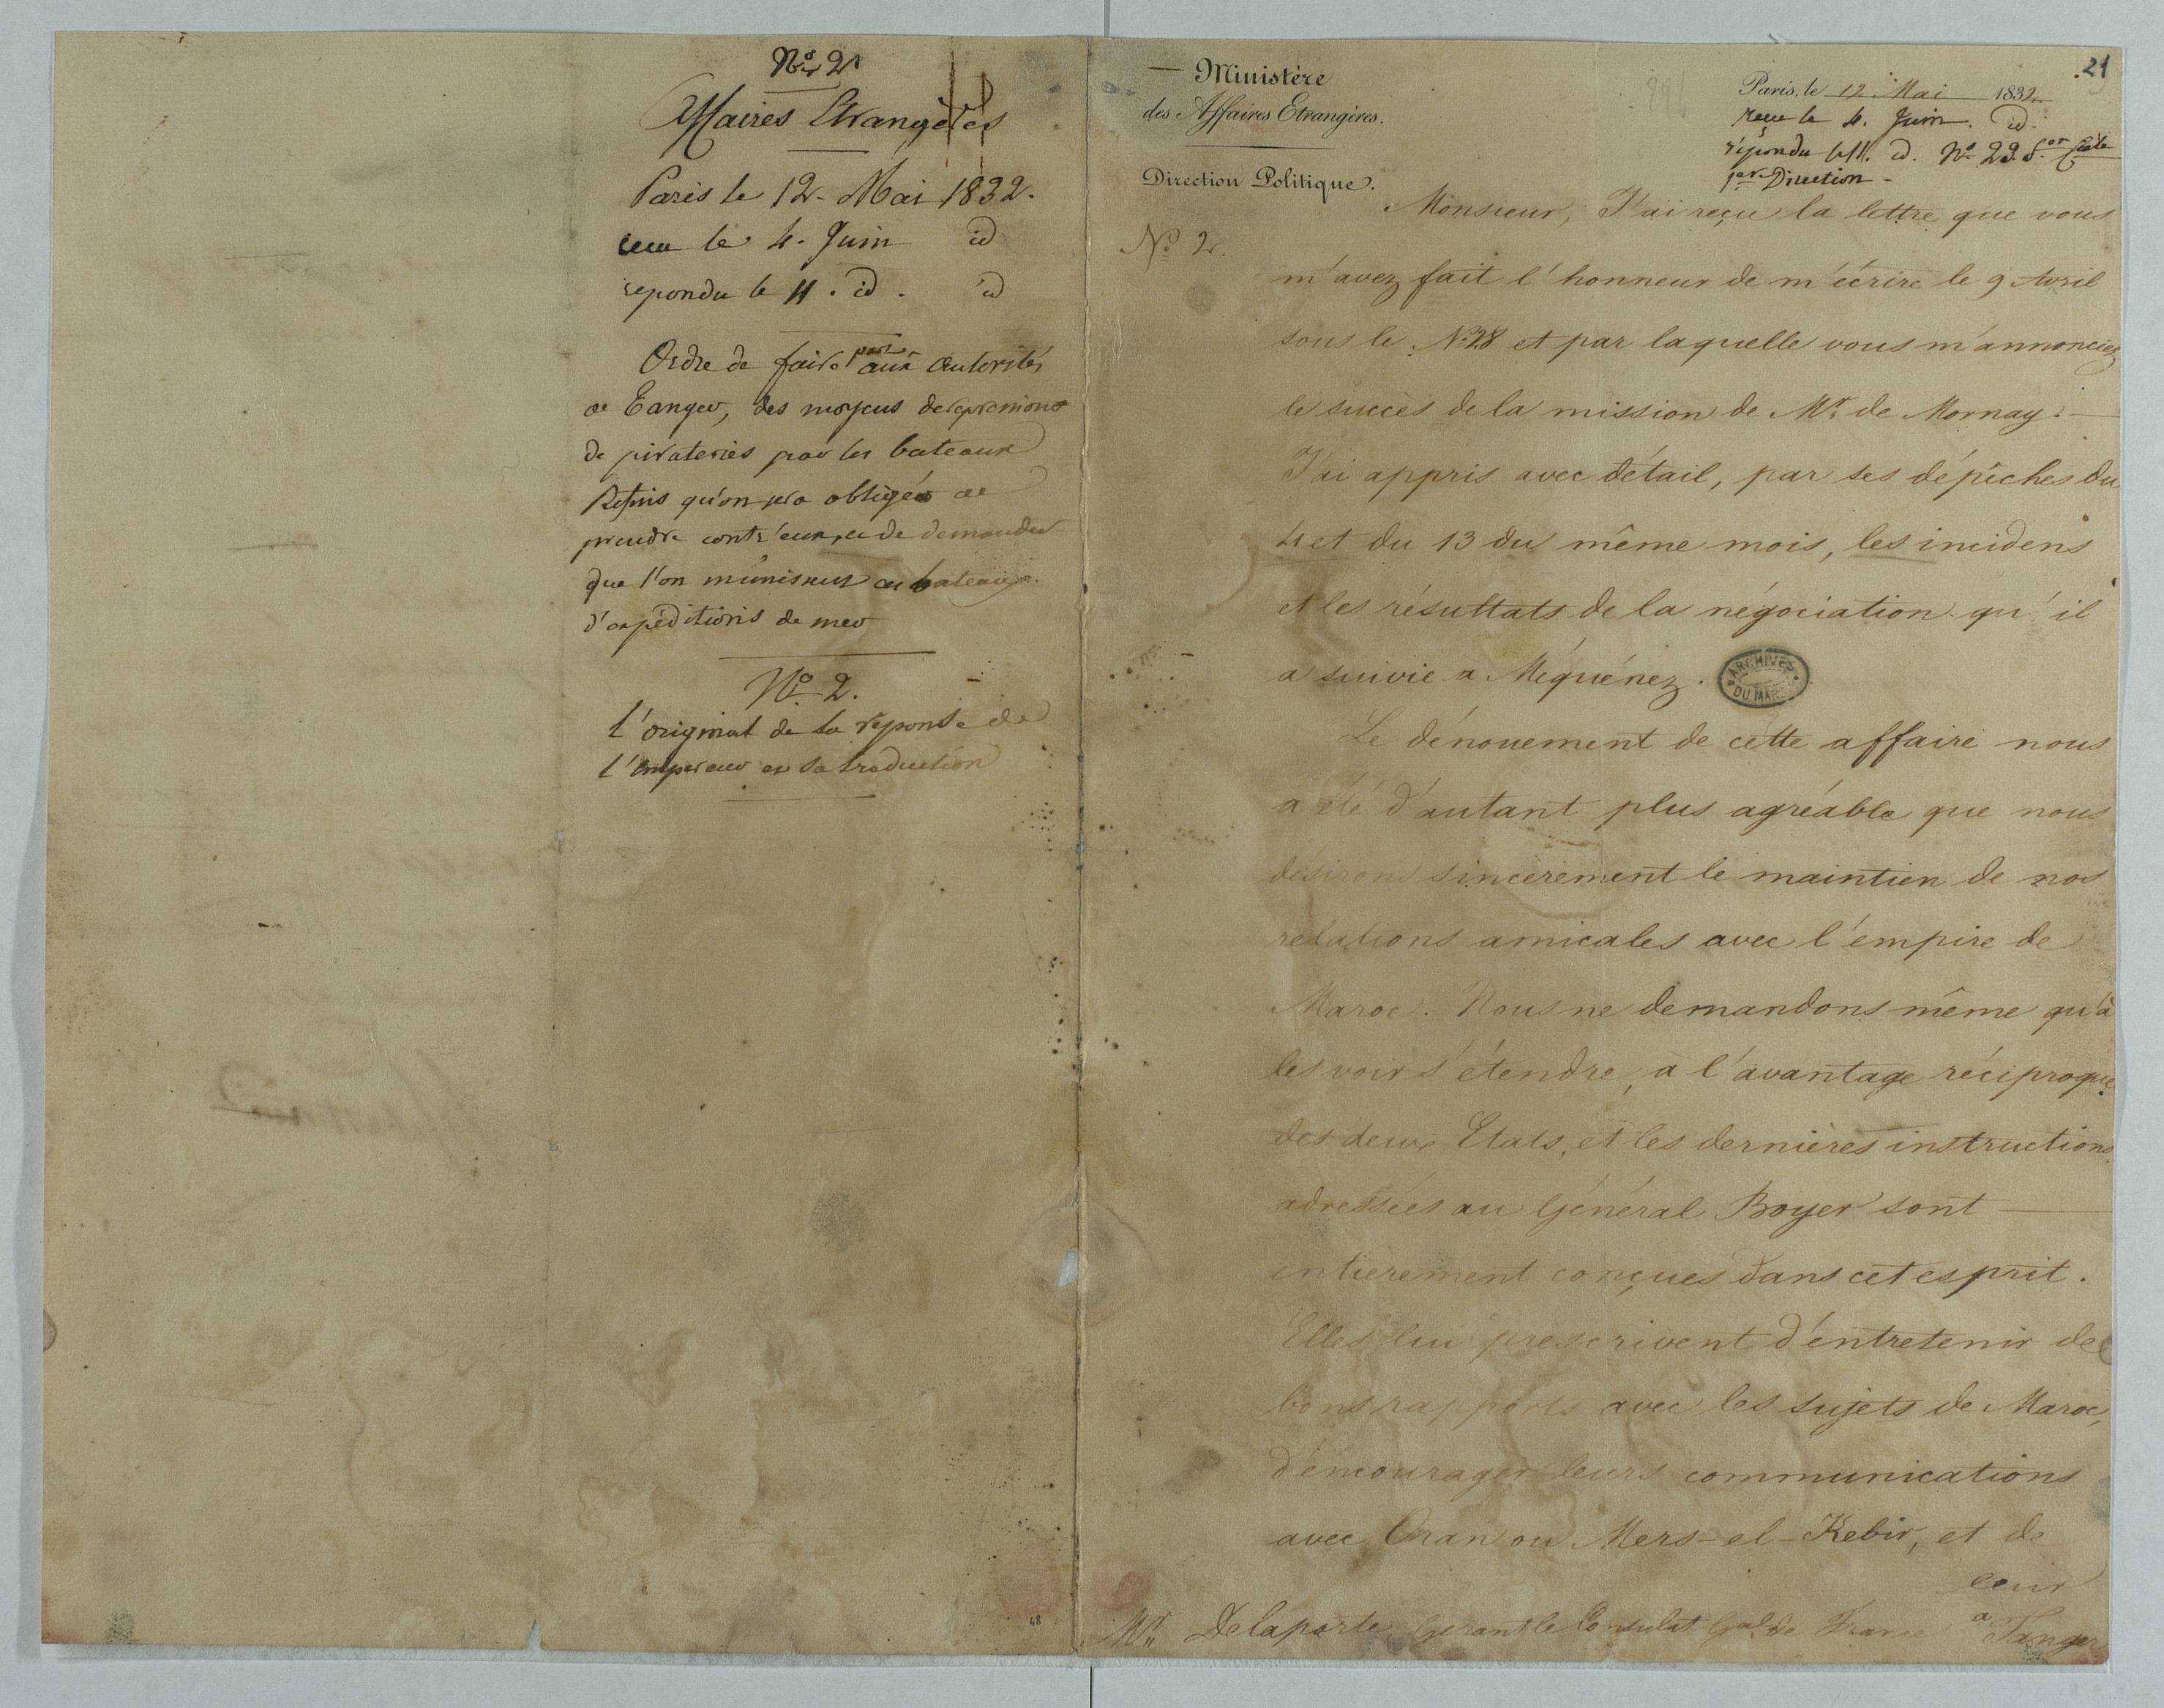 N.º 2
Affaires Etrangères
Paris le 12. Mai 1832.
recu le 4. Juin id
repondu le 11. id. id
Ordre de faire part aux autorités
de Tanger, des moyens de repression
de pirateries par les bateaux
Rifins qu'on sera obligés de
prendre contr'eux, et de demander
que l'on munissent ces bateaux
d'expéditions de mer
N.º 2.
l'original de la reponse de
l'empereur et sa traduction
48
21
Ministère
des Affaires Etrangères.
Direction Politique.
N.º 2.
Paris, le 12. Mai 1832.
reçue le 4. Juin. id.
répondu le 11. id. N.º 29.
1ere Direction
Monsieur, J'ai reçu la lettre que vous
m'avez fait l'honneur de m'écrire le 9 Avril
sous le N.º 28 et par laquelle vous m'annonciez
le succès de la mission de Mr. de Mornay.
J'ai appris avec détail, par ses dépêches du
4 et du 13 du même mois, les incidens
et les résultats de la négociation qu'il
a suivie a Méquénez.
ARCHIVES
DU MAROC
Le dénouement de cette affaire nous
a été d'autant plus agréable que nous
désirons sincèrement le maintien de nos
relations amicales avec l'empire de
Maroc. Nous ne demandons même qu'à
les voir s'étendre, a l'avantage réciproque
des deux Etats, et les dernières instructions
adressées au Général Boyer sont
entièrement conçues dans cet esprit.
Elles lui prescrivent d'entretenir de
bons rapports avec les sujets de Maroc,
d'encourager leurs communications
avec Oran ou Mers-el-Kebir, et de
leur
Mr. Delaporte Gerant le Consulat Gal. de France a Tanger